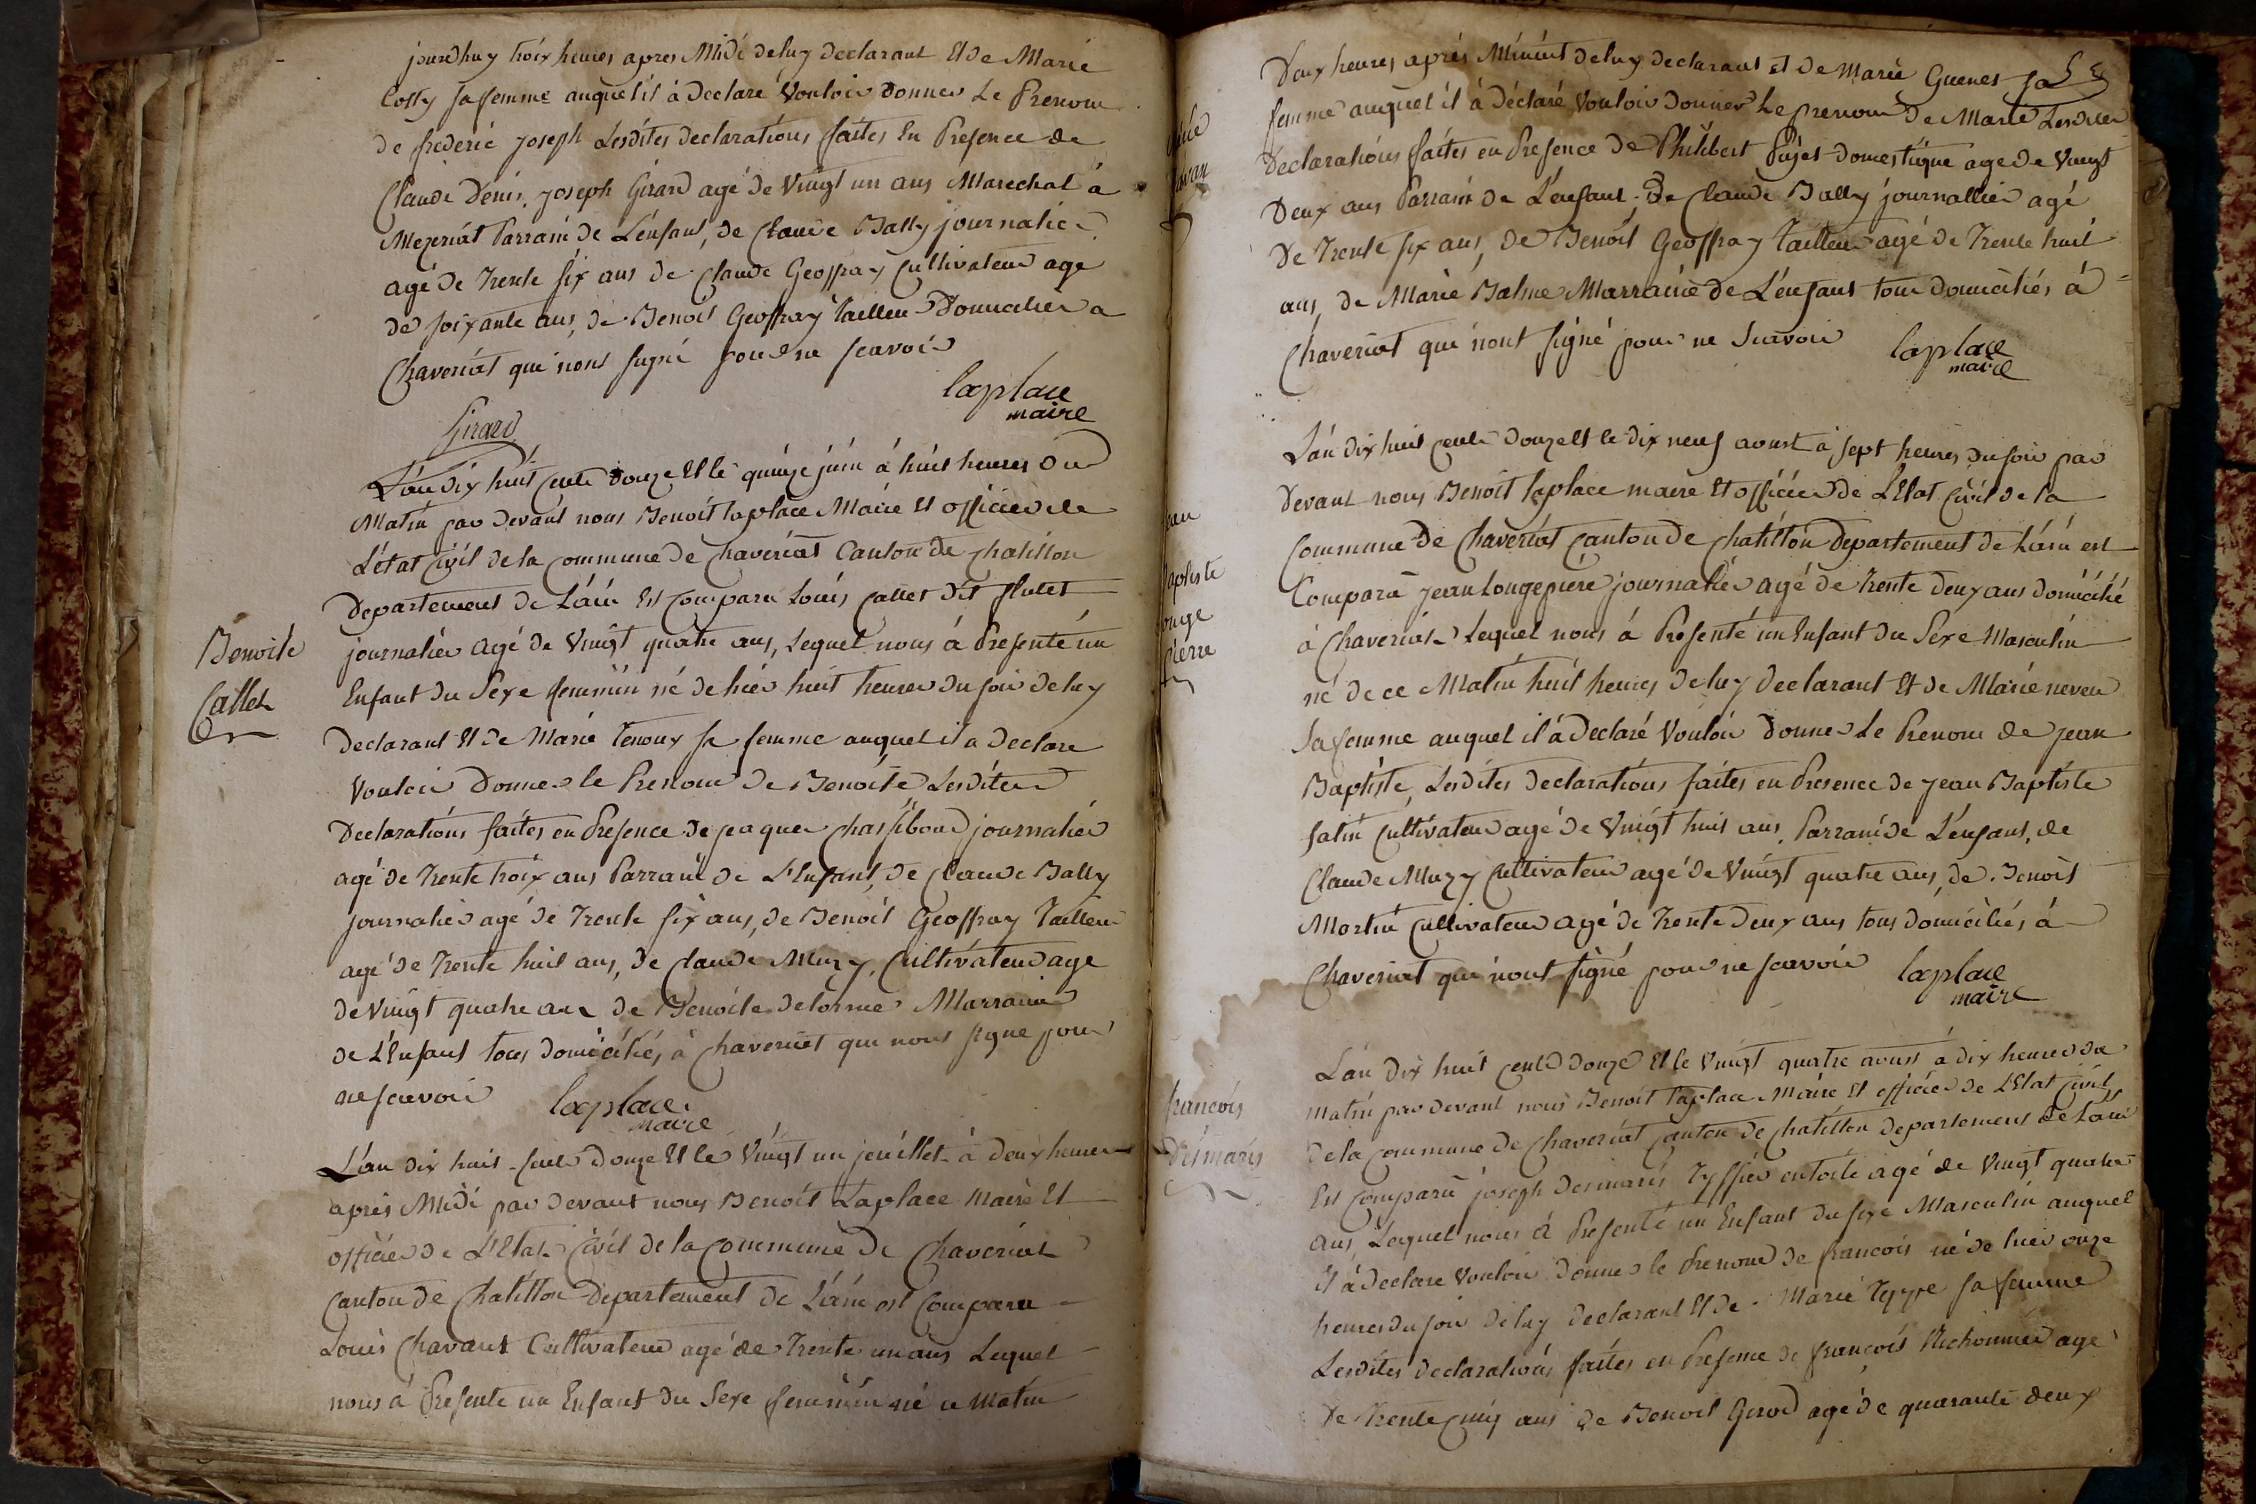 jourdhuy troix heures apres Midi de luy declarant Et de Marie
Cotty sa femme auquel il à Declaré Vouloir Donner Le Prenom
de frederic joseph Lesdites Declarations faites En Presence de
Claude Denis, joseph Girard agé de Vingt un ans Marechal à
Mezeriat Parrain de L'enfant, de Claude Bally journalier
agé de Trente six ans de Claude Geoffray Cultivateur agé
de soixante ans, de Benoit Geoffray Tailleur Domicilier a
Chaveriat qui n'ont signé pour ne scavoir
laplace
maire
Girard
L'an dix huit cents Douze Et le quinze juin à huit heures Du
Matin par Devant nous Benoit laplace Maire Et officier de
L'état Civil de la Commune de Chaveriat Canton de Chatillon
Departement de L'ain Est Comparu Louis Callet Dit flutet
journalier agé de Vingt quatre ans, Lequel nous à Presenté un
Enfant du Sexe feminin né de hier huit heures du soir de luy
Declarant Et de Marie Tenoux sa femme auquel il a Declare
Vouloir Donner le Prenom de Benoite Lesdites
Declarations faites en Presence de jaques Chassibout journalier
agé de Trente troix ans Parrain de L'Enfant, de Claude Bally
journalier agé de Trente six ans, de Benoit Geoffray Tailleur
agé de Trente huit ans, de Claude Muzy, Cultivateur age
de Vingt quatre ans de Benoite delorme Marraine
de L'Enfant tous domiciliés à Chaveriat qui nont signe pour
ne scavoir laplace
maire
Benoite
Callet
L'an dix huit cents Douze Et le Vingt un jeuillet à deux heures
après Midi par devant nous Benoit Laplace Maire Et
officier de L'Etat Civil de la Commune de Chaveriat
Canton de Chatillon Departement de L'ain est Comparu
Louis Chavant Cultivateur agé de Trente un ans Lequel
nous à Presente un Enfant du Sexe feminin né ce Matin
Deux heures après Minuit de luy declarant Et de Marie Guenes sa
femme auquel il à Déclaré Vouloir Donner Le prenom de Marie Lesdites
Declarations faites en Presence de Philibert Pujet Domestique age de Vingt
Deux ans Parrain de L'enfant. De Claude Bally journallier agé
De Trente six ans, de Benoit Geoffray Tailleur agé de Trente huit
ans, de Marie Balme Marraine de L'enfant tous domiciliés à
Chaveriat qui n'ont signé pour ne Scavoir laplace
maire
L'an dix huit cents Douze Et le dix neuf aoust à sept heures du soir par
Devant nous Benoit laplace maire Et officier de L'Etat Civil de la
Commune de Chaveriat Canton de Chatillon Departement de L'ain est
Comparu jean Longepiére journalier agé de Trente deux ans domicilié
à Chaveriat Lequel nous à Presenté un Enfant du Sexe Masculin
né de ce Matin huit heures de luy declarant Et de Marie neveu
sa femme auquel il à Declaré Vouloir Donner Le Prenom de jean
Baptiste, Lesdites declarations faites en Presence de jean Baptiste
fatin Cultivateur agé de Vingt huit ans, Parrain de L'enfant, de
Claude Muzy Cultivateur agé de Vingt quatre ans, de Benoit
Martin Cultivateur agé de Trente Deux ans tous domiciliés à
Chaveriat qui n'ont signé pour ne scavoir laplace
maire
aptiste
onge
pierre
L'an dix huit cents Douze Et le Vingt quatre aoust à dix heures du
Matin par devant nous Benoit laplace Maire Et officier de L'Etat Civil
De la Commune de Chaveriat Canton de Chatillon departement de L'ain
Est Comparu joseph Desmaris Tyssier en toile agé de Vingt quatre
ans, Lequel nous à Presenté un Enfant du sexe Masculin auquel
Il à Declare Vouloir Donner le Prenom de francois né de hier onze
heures du soir de luy declarant Et de Marie Teppe sa femme
Lesdites declarations faites en Presence de françois Michonnier agé
De Trente Cinq ans de Benoit Girod agé de quarante deux
francois
Desmaris